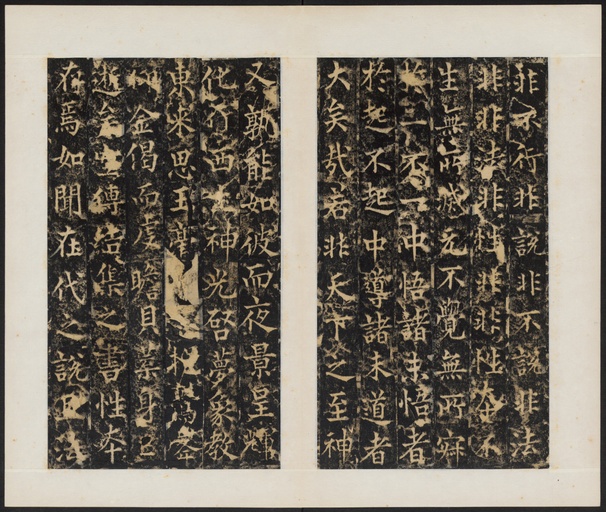 非不行非說非不說非法
非非法非性非非性本不
生無所滅元不覺無所寂
一不一中悟諸未悟者
於起不起中導諸未道者
大矣哉若非天下之至神
又孰能如彼而夜景呈輝
化行西土神光啓夢象教
東來思王之於
金偈而虔瞻貝葉身已
逝矣空傳結集之書性本
存焉如聞在代之說正法